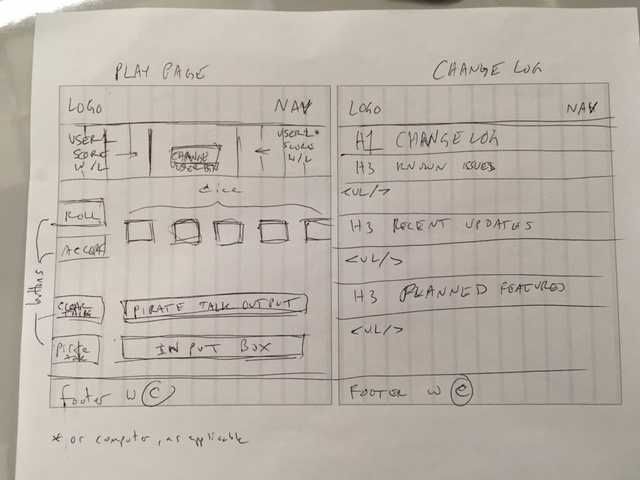 PLAY PAGE
LOGO
NAV
USER 1
SCORE
W/L
CHANGE
USER 2*
SCORE
W/L
dice
ROLL
ACCEPT
PIRATE TALK OUTPUT
PIRATE
INPUT BOX
footer w ©
* or computer, as applicable
CHANGE LOG
LOGO
NAV
H1 CHANGE LOG
H3 KNOWN ISSUES
<UL/>
H3 RECENT UPDATES
<UL/>
H3 PLANNED FEATURES
<UL/>
FOOTER W ©